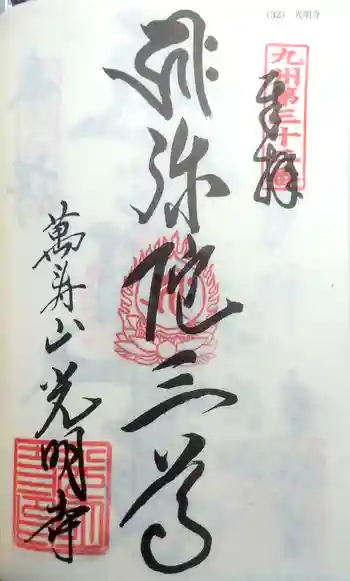 (32) 光明寺
九州第三十二番
奉拝
弥陀三尊
萬寿山光明寺